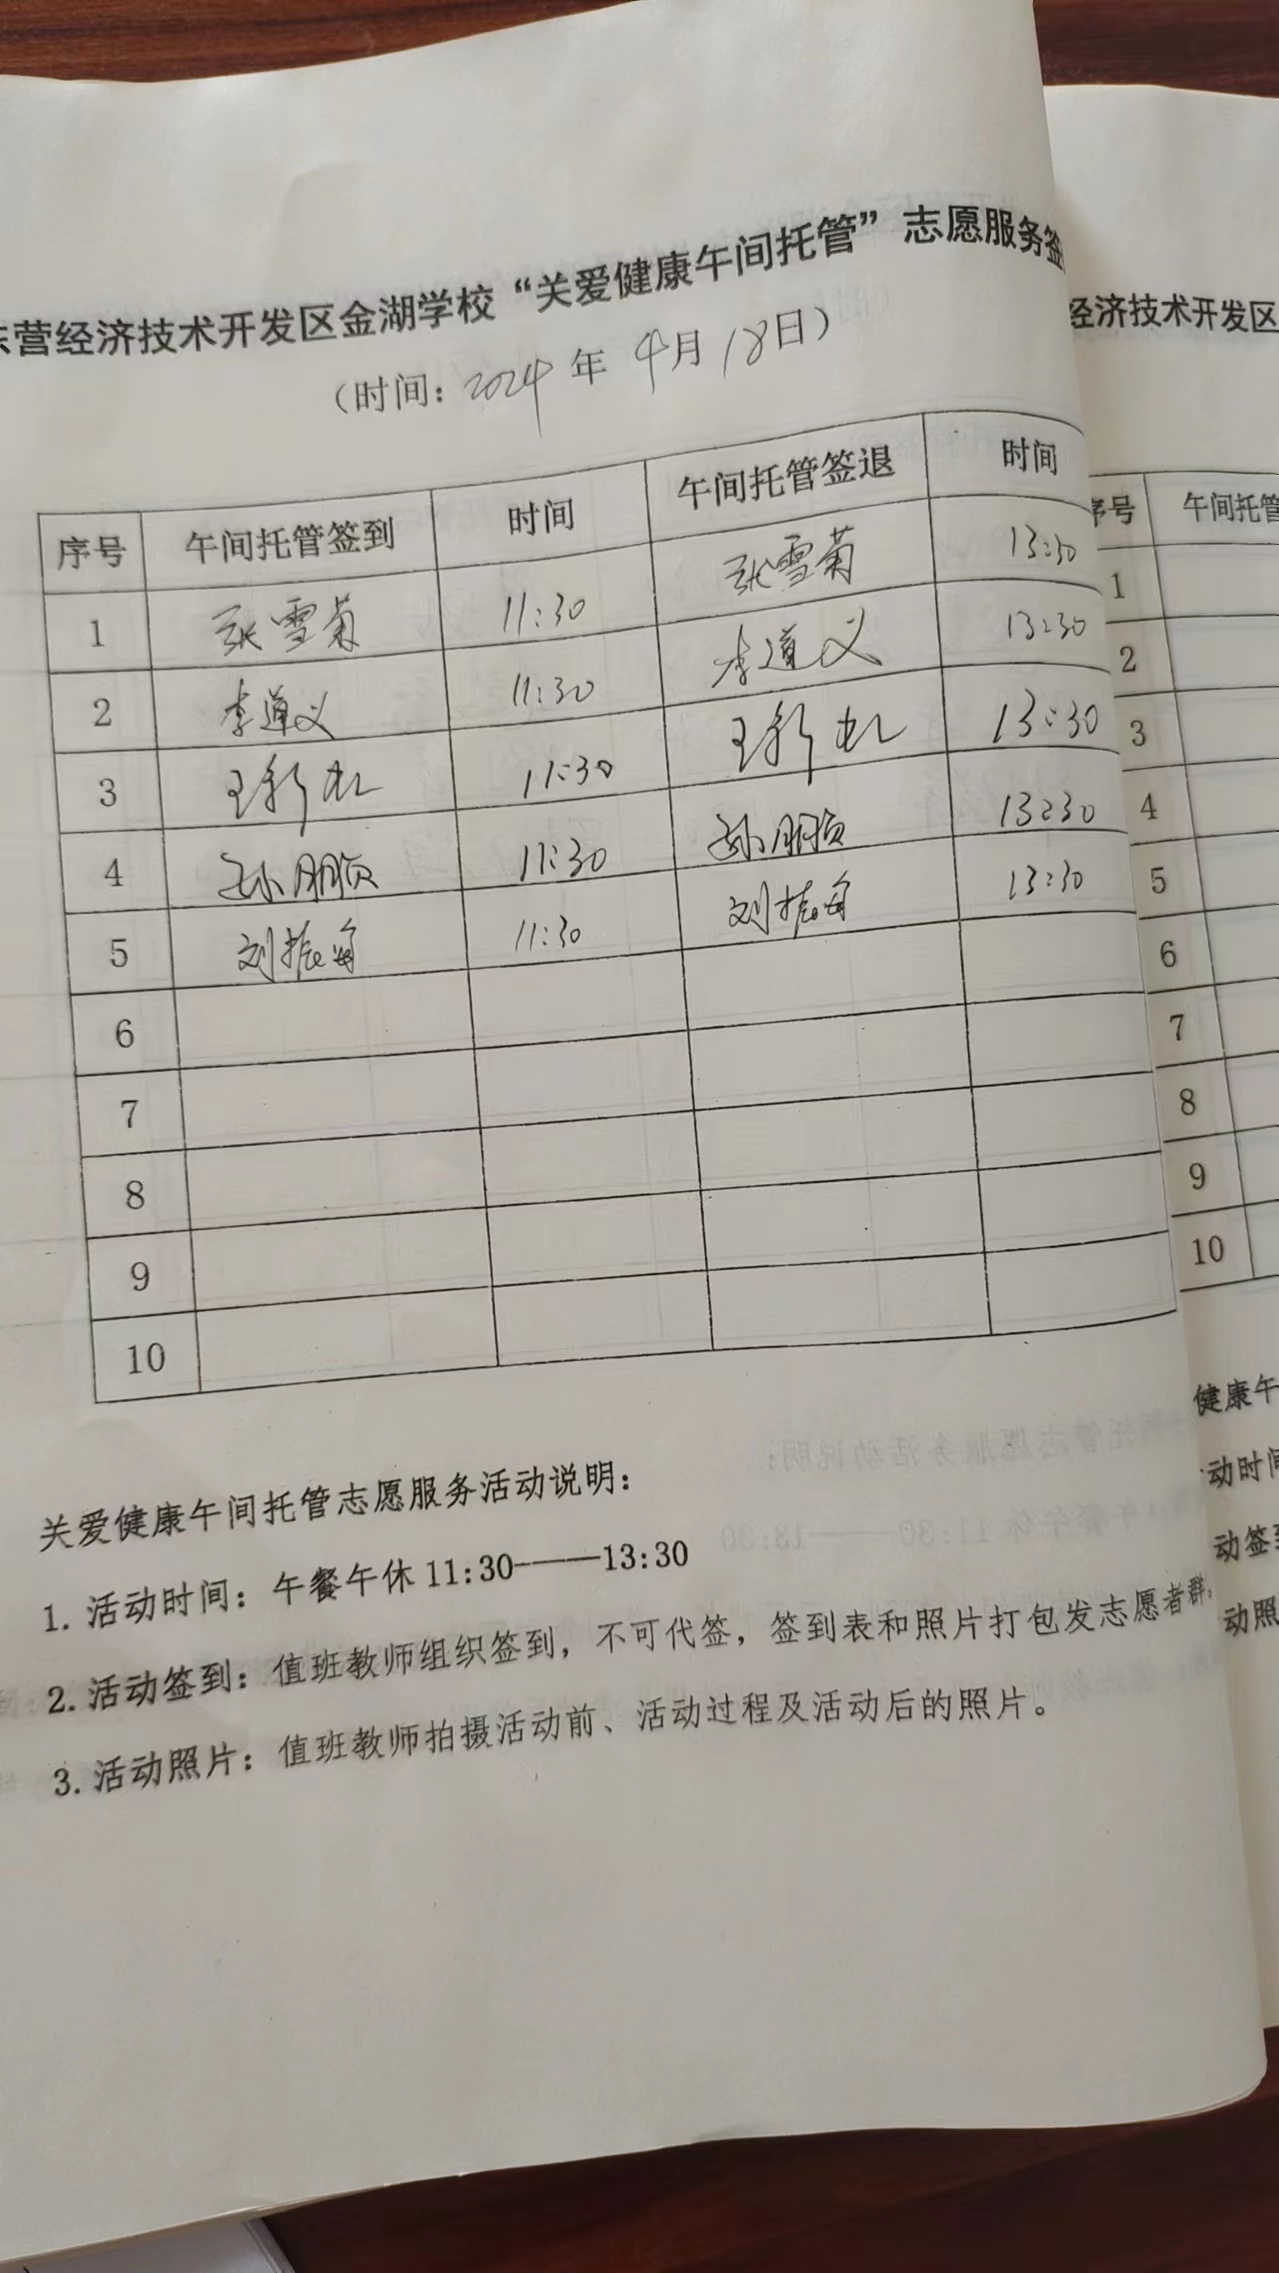 东营经济技术开发区金湖学校“关爱健康午间托管”志愿服务签
(时间: 2024年 4月 18日)
序号 午间托管签到 时间 午间托管签退 时间
1 张雪菊 11:30 张雪菊 13:30
2 李道义 11:30 李道义 13:30
3 王新虹 11:30 王新虹 13:30
4 孙朋 11:30 孙朋 13:30
5 刘振海 11:30 刘振海 13:30
6
7
8
9
10
关爱健康午间托管志愿服务活动说明:
1. 活动时间: 午餐午休 11:30-——13:30
2. 活动签到: 值班教师组织签到, 不可代签, 签到表和照片打包发志愿者群.
3. 活动照片: 值班教师拍摄活动前、活动过程及活动后的照片。
经济技术开发区
序号 午间托管
1
2
3
4
5
6
7
8
9
10
健康午
动时间
动签到
动照